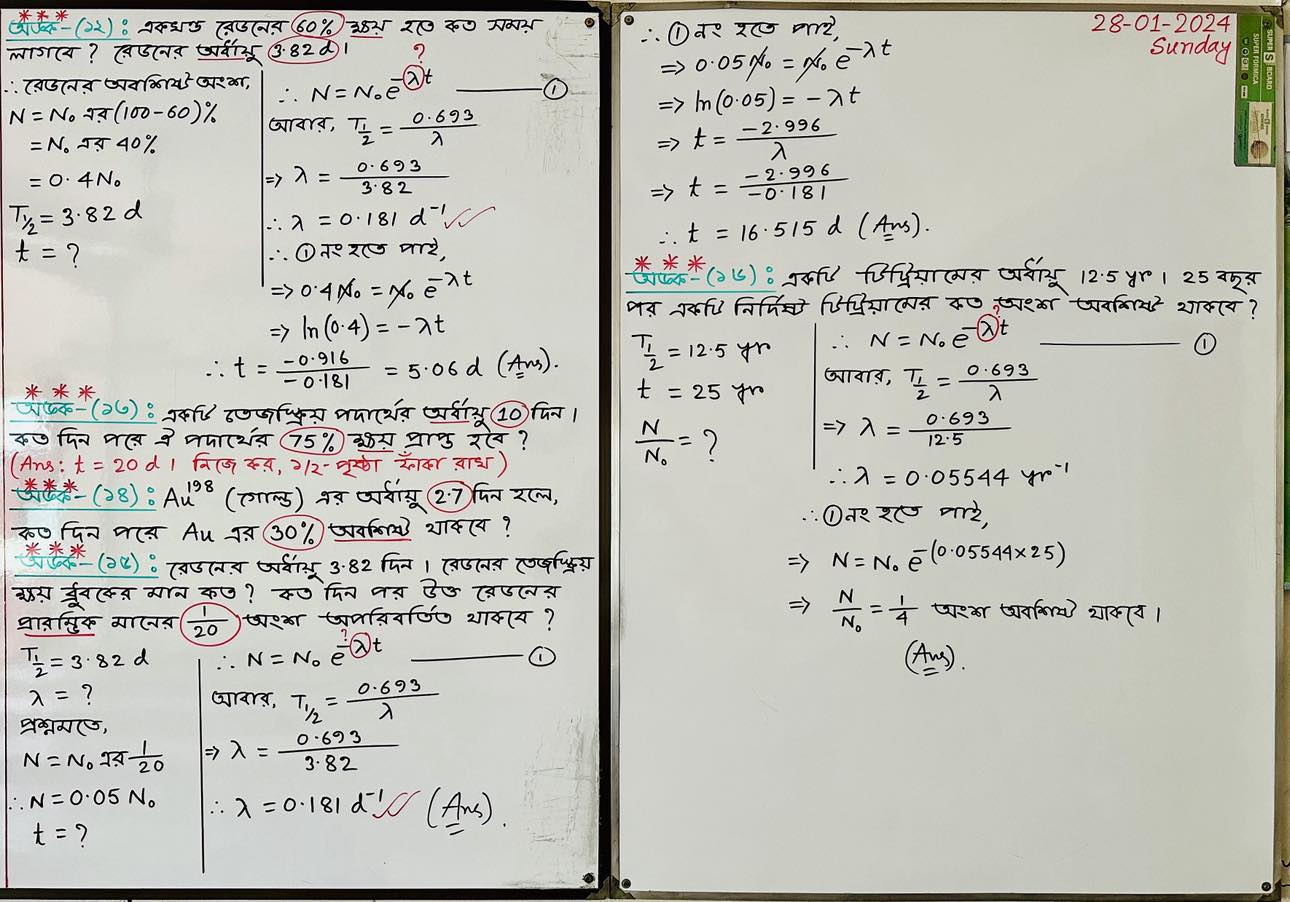 অংক-(১২): একখন্ড রেডনের 60% ক্ষয় হতে কত সময়
লাগবে? রেডনের অর্ধায়ু 3.82 d।
∴ রেডনের অবশিষ্ট অংশ,
N = N₀ এর (100-60)%
= N₀ এর 40%
= 0.4N₀
T½ = 3.82 d
t = ?
?
∴ N = N₀e^-λt ——— ①
আবার, T½ = 0.693/λ
=> λ = 0.693/3.82
∴ λ = 0.181 d⁻¹
∴ ① নং হতে পাই,
=> 0.4N₀ = N₀ e^-λt
=> ln(0.4) = -λt
∴ t = -0.916/-0.181 = 5.06 d (Ans).
অংক-(১৩): একটি তেজস্ক্রিয় পদার্থের অর্ধায়ু 10 দিন।
কত দিন পরে ঐ পদার্থের 75% ক্ষয় প্রাপ্ত হবে?
(Ans: t = 20 d। নিজে কর, ১/২-পৃষ্ঠা ফাঁকা রাখ)
অংক-(১৪): Au¹⁹⁸ (গোল্ড) এর অর্ধায়ু 2.7 দিন হলে,
কত দিন পরে Au এর 30% অবশিষ্ট থাকবে?
অংক-(১৫): রেডনের অর্ধায়ু 3.82 দিন। রেডনের তেজস্ক্রিয়
ক্ষয় ধ্রুবকের মান কত? কত দিন পর উক্ত রেডনের
প্রারম্ভিক মানের 1/20 অংশ অপরিবর্তিত থাকবে?
T½ = 3.82 d
λ = ?
প্রশ্নমতে,
N = N₀ এর 1/20
∴ N = 0.05 N₀
t = ?
?
∴ N = N₀ e^-λt ——— ①
আবার, T½ = 0.693/λ
=> λ = 0.693/3.82
∴ λ = 0.181 d⁻¹ (Ans).
∴ ① নং হতে পাই,
=> 0.05N₀ = N₀ e^-λt
=> ln(0.05) = -λt
=> t = -2.996/λ
=> t = -2.996/-0.181
∴ t = 16.515 d (Ans).
28-01-2024
Sunday
SUPER BOARD
SUPER FORMICA
অংক-(১৬): একটি টিপ্রিয়ামের অর্ধায়ু 12.5 yr। 25 বছর
পর একটি নির্দিষ্ট টিপ্রিয়ামের কত অংশ অবশিষ্ট থাকবে?
T½ = 12.5 yr
t = 25 yr
N/N₀ = ?
?
∴ N = N₀ e^-λt ——— ①
আবার, T½ = 0.693/λ
=> λ = 0.693/12.5
∴ λ = 0.05544 yr⁻¹
∴ ① নং হতে পাই,
=> N = N₀ e^-(0.05544×25)
=> N/N₀ = 1/4 অংশ অবশিষ্ট থাকবে।
(Ans).